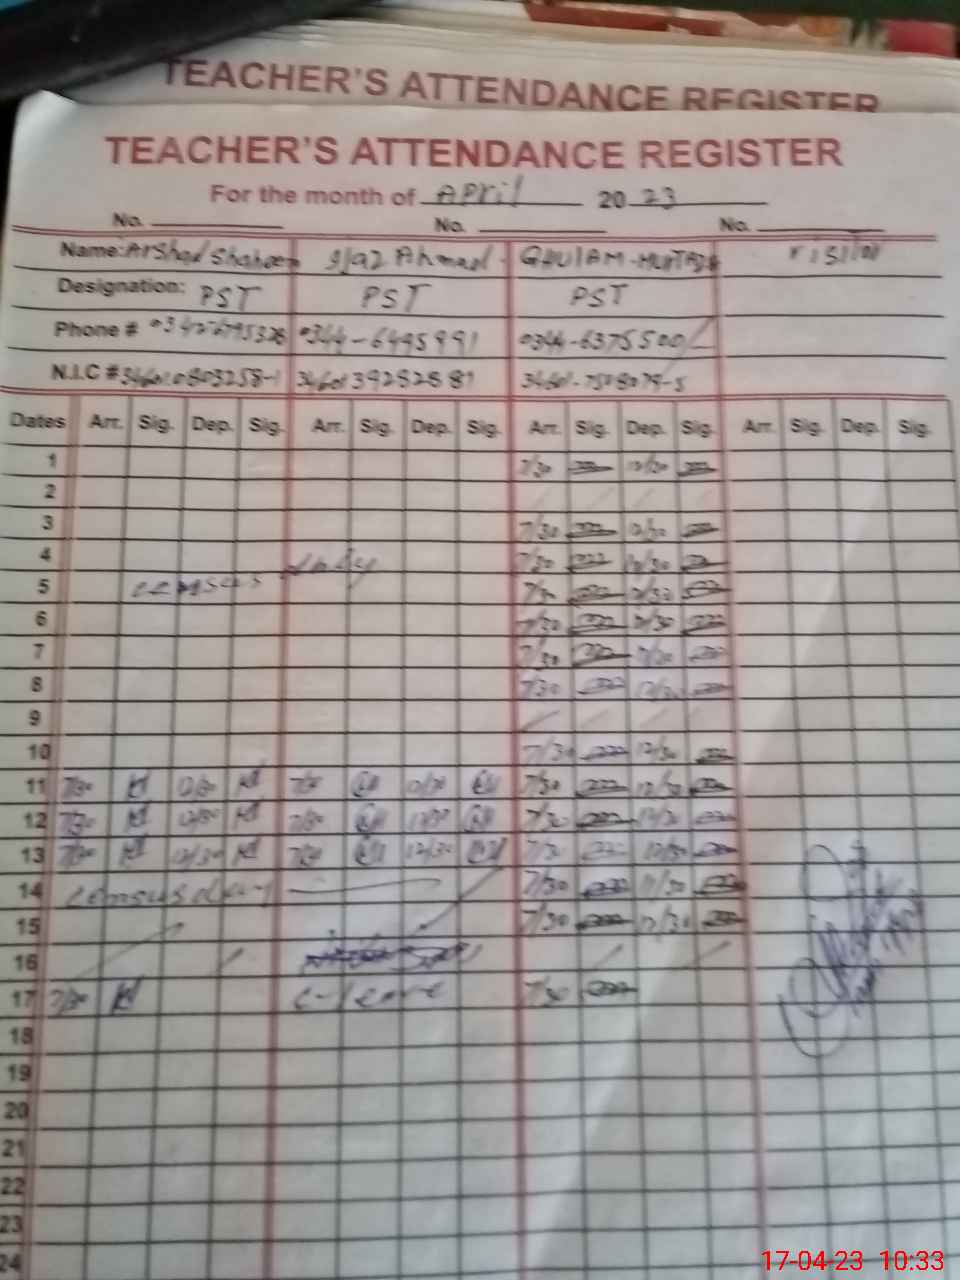 TEACHER'S ATTENDANCE REGISTER
TEACHER'S ATTENDANCE REGISTER
For the month of April 2023
No. No. No.
Name: Arshad Shaheen Ijaz Ahmad GHULAM-MURTAZA visitor
Designation: PST PST PST
Phone # 0344-6495991 0344-6375500
N.I.C # 34601-7508079-5
Dates Arr. Sig. Dep. Sig. Arr. Sig. Dep. Sig. Arr. Sig. Dep. Sig. Arr. Sig. Dep. Sig.
1 7/30 12/30
2
3 7/30 12/30
4 7/30 12/30
5 census duty 7/30 12/30
6 7/30 12/30
7 7/30 12/30
8 7/30 12/30
9
10 7/30 12/30
11 7/30 12/30 7/30 12/30 7/30 12/30
12 7/30 12/30 7/30 12/30 7/30 12/30
13 7/30 12/30 7/30 12/30 7/30 12/30
14 census duty 7/30 11/30
15 7/30 12/30
16
17 7/30 C-leave 7/30
18
19
20
21
22
23
24
17-04-23 10:33